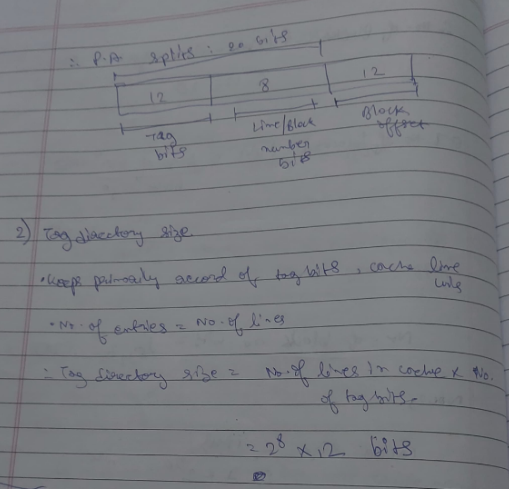 ∴ P.A splits : 20 bits
12 8 12
Tag bits
Line/Block number bits
Block offset
2) Tag directory size
• Keeps primarily record of tag bits, cache line
• No. of entries = No. of lines
∴ Tag directory size = No. of lines in cache × No.
of tag bits.
= 2⁸ × 12 bits